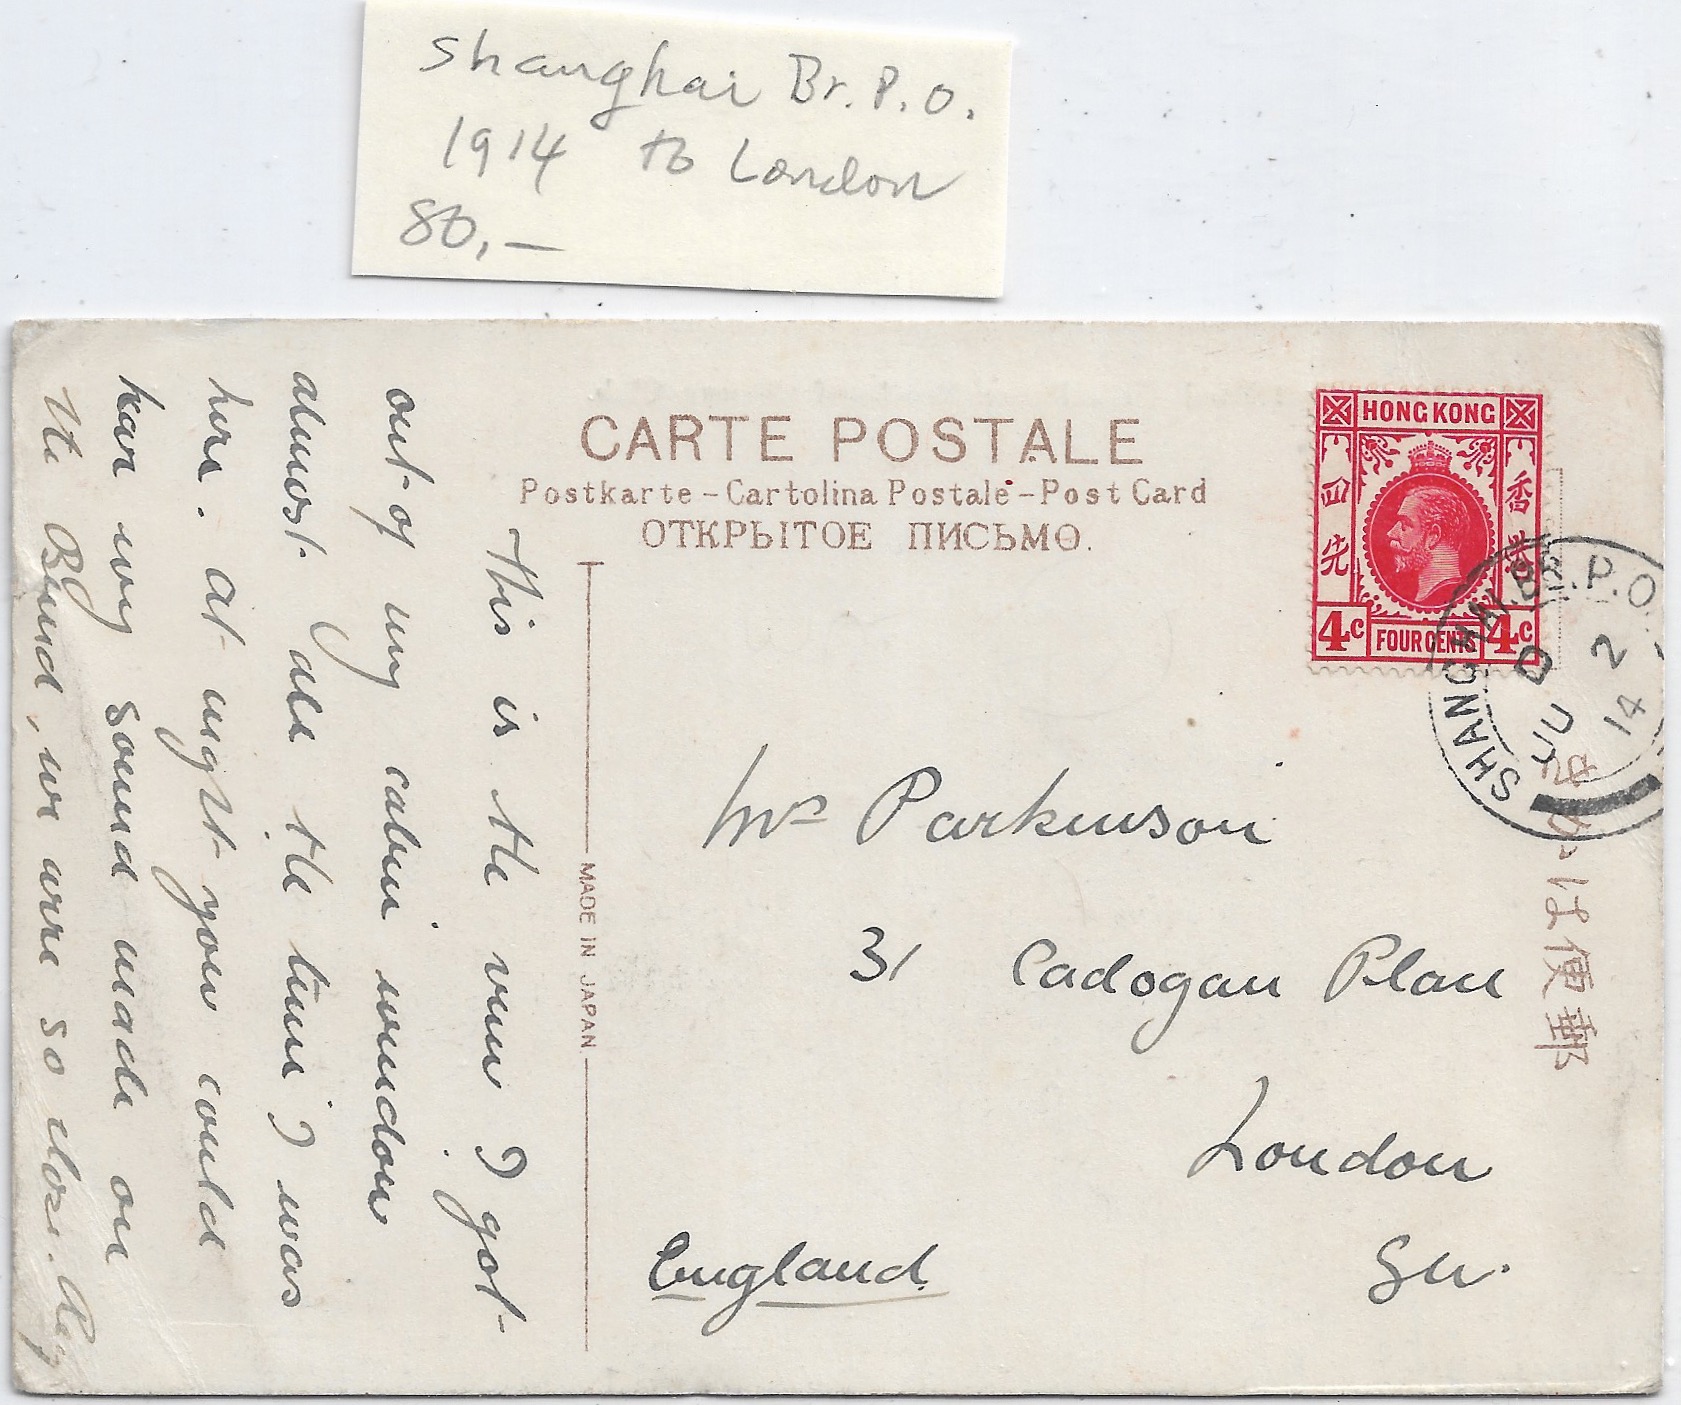 Shanghai Br. P.O.
1914 to London
80,—
CARTE POSTALE
Postkarte - Cartolina Postale - Post Card
ОТКРЫТОЕ ПИСЬМО.
HONG KONG
香港
四先
4c FOUR CENTS 4c
SHANGHAI BR.P.O.
D
JU 2
14
郵便はかき
MADE IN JAPAN
This is the view I got
out of my cabin window
almost all the time I was
here. At night you could
hear any sound made on
the Bund, we were so close. Reg
Mrs Parkinson
31 Cadogan Place
London
S.W.
England